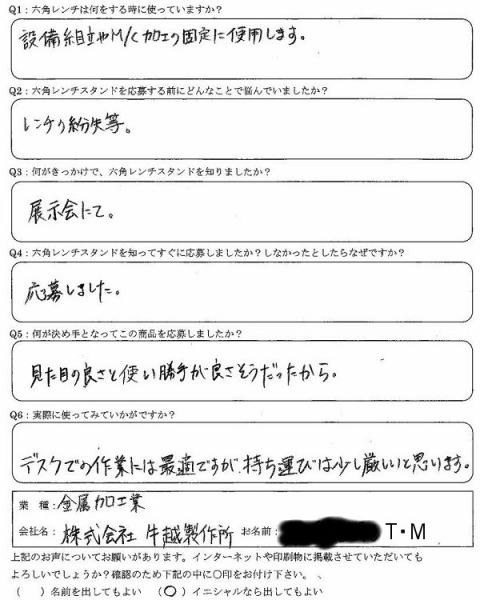 Q1：六角レンチは何をする時に使っていますか？
設備組立やM/C加工の固定に使用します。
Q2：六角レンチスタンドを応募する前にどんなことで悩んでいましたか？
レンチの紛失等。
Q3：何がきっかけで、六角レンチスタンドを知りましたか？
展示会にて。
Q4：六角レンチスタンドを知ってすぐに応募しましたか？しなかったとしたらなぜですか？
応募しました。
Q5：何が決め手となってこの商品を応募しましたか？
見た目の良さと使い勝手が良さそうだったから。
Q6：実際に使ってみていかがですか？
デスクでの作業には最適ですが、持ち運びは少し厳しいと思います。
業　種：金属加工業
会社名：株式会社 牛越製作所　お名前：T・M
上記のお声についてお願いがあります。インターネットや印刷物に掲載させていただいても
よろしいでしょうか？確認のため下記の中に○印をお付け下さい。
（　）名前を出してもよい　（○）イニシャルなら出してもよい